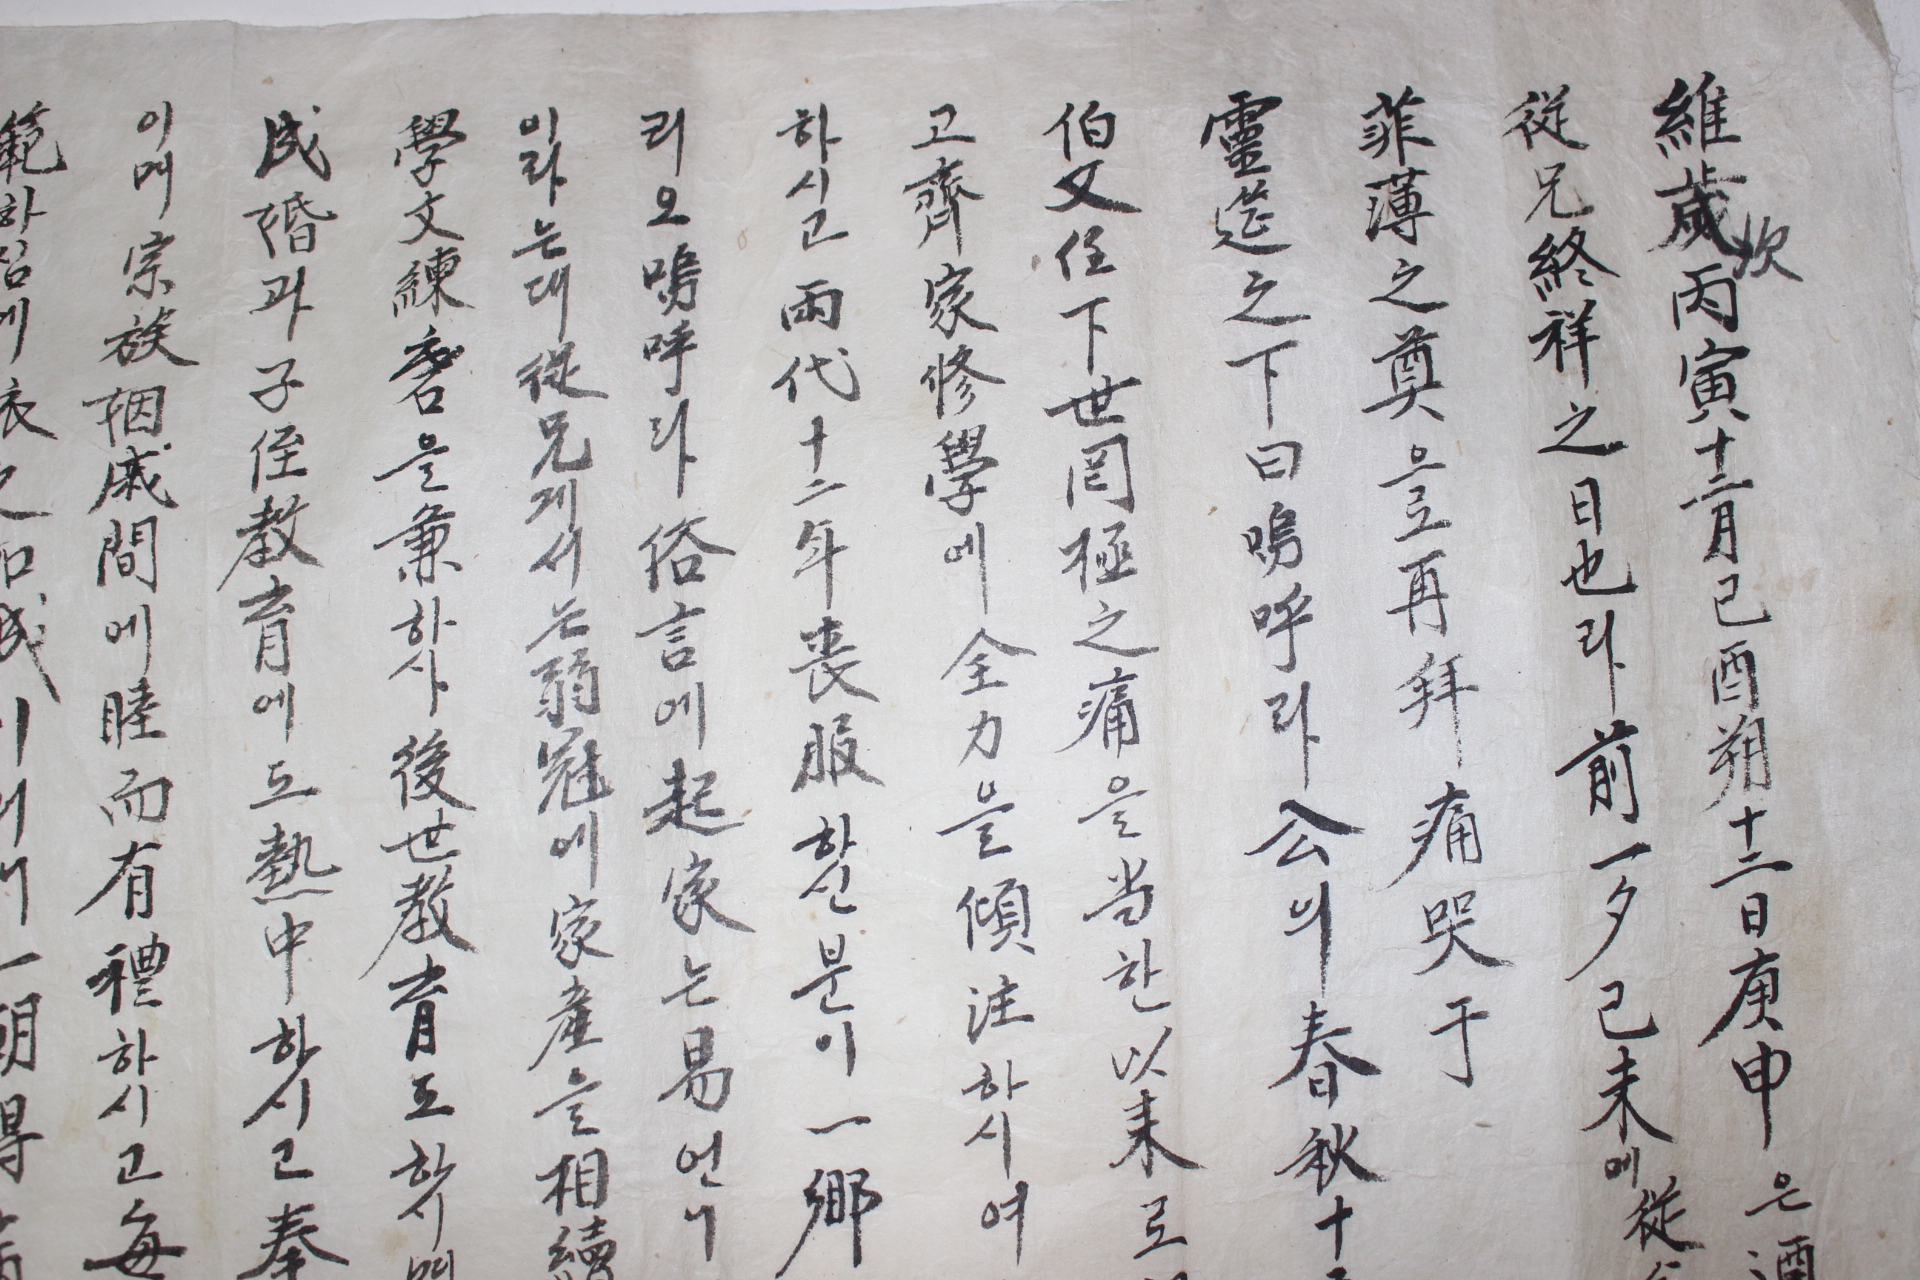 維歲次丙寅十二月己酉朔十二日庚申은
從兄終祥之日也라前一夕己未에從
菲薄之奠으로再拜痛哭于
靈筵之下曰嗚呼라公의春秋十
伯父任下世罔極之痛을当한以来로
고齊家修學에全力을傾注하시여
하시고兩代十二年喪服하신분이一鄉
리오嗚呼라俗言에起家는易언니
이라는대從兄게서는弱冠에家産을相續
學文練磨을兼하사後世教育도하시
成婚과子侄教育에도熱中하시고奉
이며宗族姻戚間에睦而有禮하시고每
範하심에衣之 一朝得